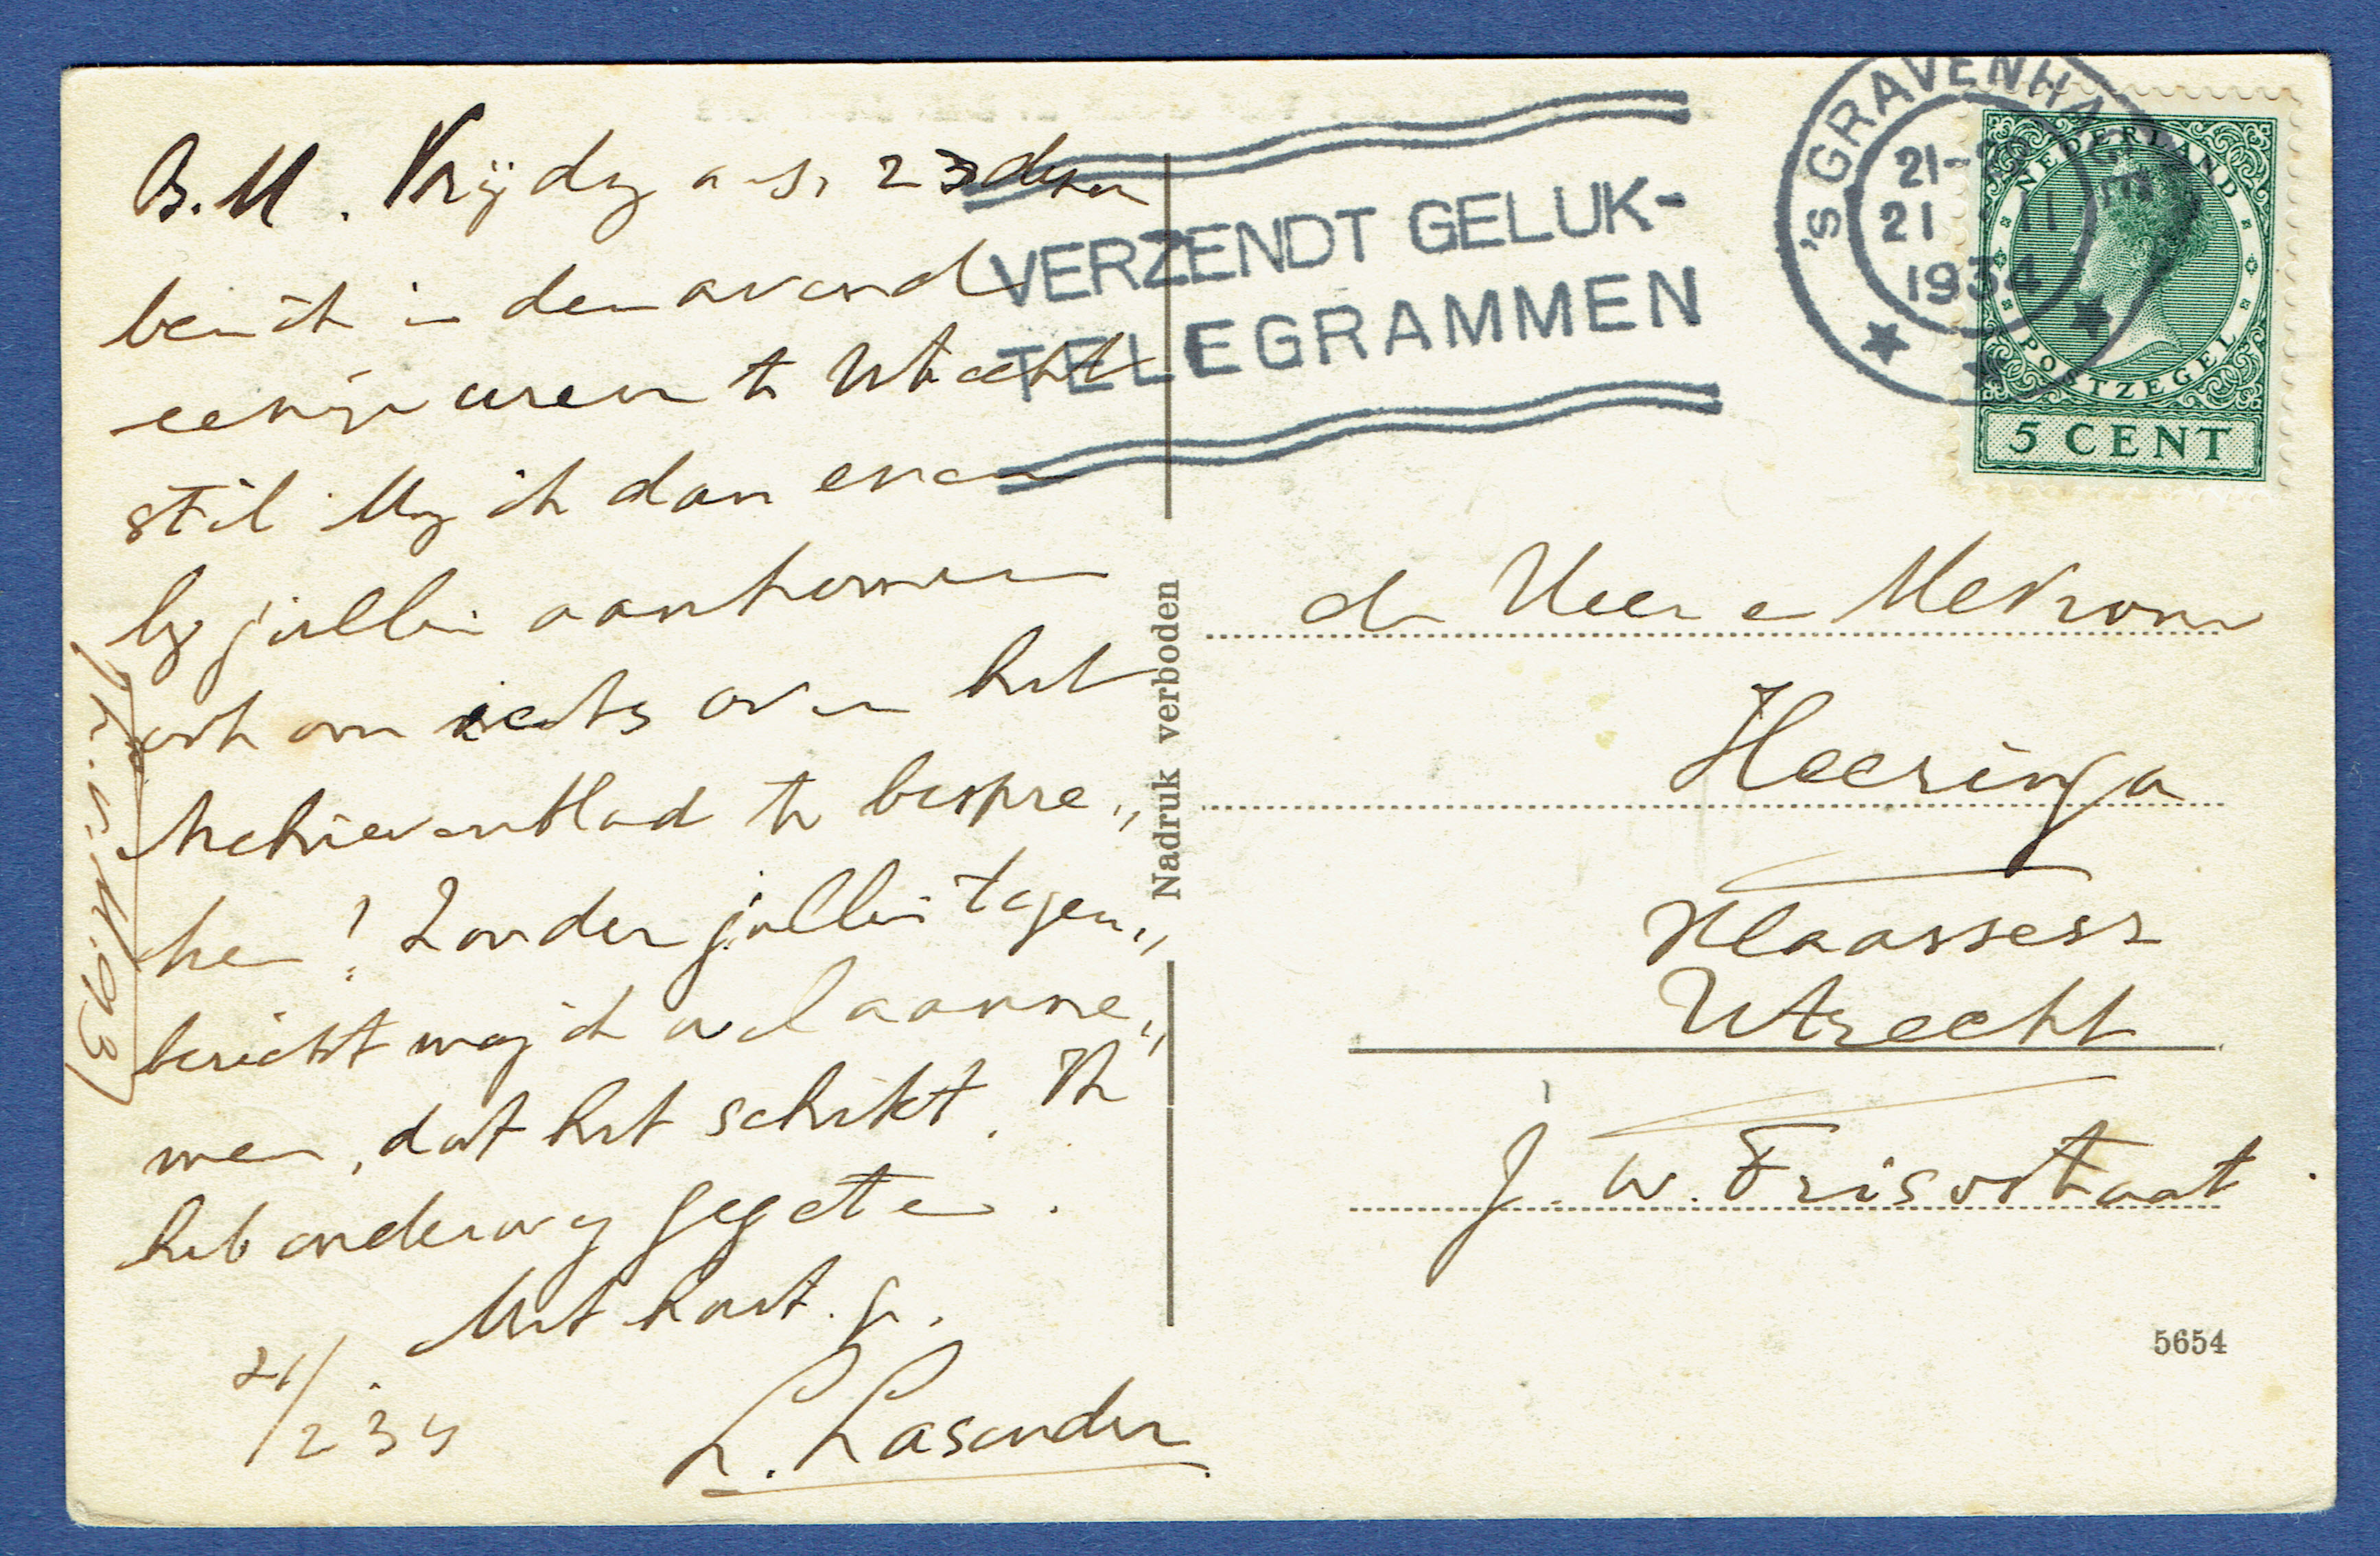 B.M. Vrijdag a.s. 23 dezer
ben ik in den avond
eenige uren te Utrecht
stil. Mag ik dan even
bij jullie aankomen
ook om iets over het
te bespre„
ken? Zonder jullie tegen„
bericht mag ik wel aanne„
men, dat het schikt. Ik
heb onderweg gegeten.
Met hart. gr.
21/
VERZENDT GELUK-
TELEGRAMMEN
'S GRAVENHA
21-
21 11
1934
NEDERLAND
POSTZEGEL
5 CENT
Nadruk verboden
de Heer en Mevrouw
Heeringa
Utrecht
J. W. Frisostraat
5654